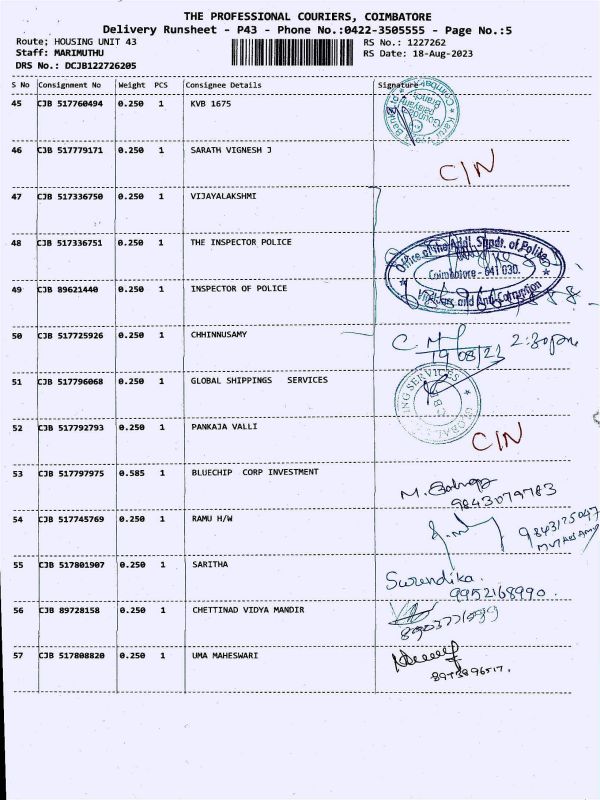 THE PROFESSIONAL COURIERS, COIMBATORE
Delivery Runsheet - P43 - Phone No.:0422-3505555 - Page No.:5
Route; HOUSING UNIT 43 RS No.: 1227262
Staff: MARIMUTHU RS Date: 18-Aug-2023
DRS No.: DCJB122726205
S No Consignment No Weight PCS Consignee Details Signature
45 CJB 517760494 0.250 1 KVB 1675
46 CJB 517779171 0.250 1 SARATH VIGNESH J C/N
47 CJB 517336750 0.250 1 VIJAYALAKSHMI
48 CJB 517336751 0.250 1 THE INSPECTOR POLICE
Office of the Addl. Supdt. of Police
Coimbatore - 641 030.
Vigilance and Anti-Corruption
49 CJB 89621440 0.250 1 INSPECTOR OF POLICE
50 CJB 517725926 0.250 1 CHHINNUSAMY 2:30pm
51 CJB 517796068 0.250 1 GLOBAL SHIPPINGS SERVICES
52 CJB 517792793 0.250 1 PANKAJA VALLI C/N
53 CJB 517797975 0.585 1 BLUECHIP CORP INVESTMENT
9843079783
54 CJB 517745769 0.250 1 RAMU H/W
9843125047
55 CJB 517801907 0.250 1 SARITHA Surendika.
9952168990.
56 CJB 89728158 0.250 1 CHETTINAD VIDYA MANDIR
57 CJB 517808820 0.250 1 UMA MAHESWARI